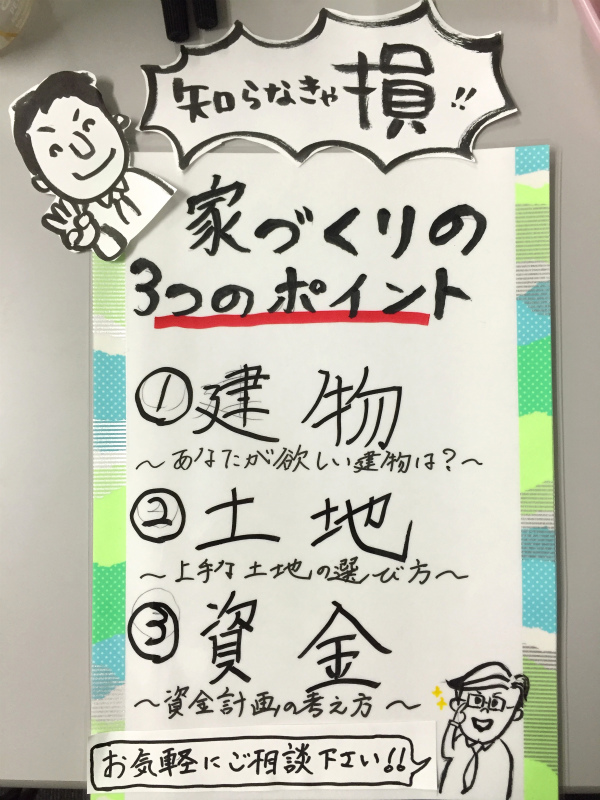 知らなきゃ損!!
家づくりの
3つのポイント
① 建物
〜あなたが欲しい建物は?〜
② 土地
〜上手な土地の選び方〜
③ 資金
〜資金計画の考え方〜
お気軽にご相談下さい!!